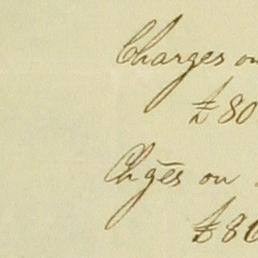 Charges on
£80
Chges on
£80